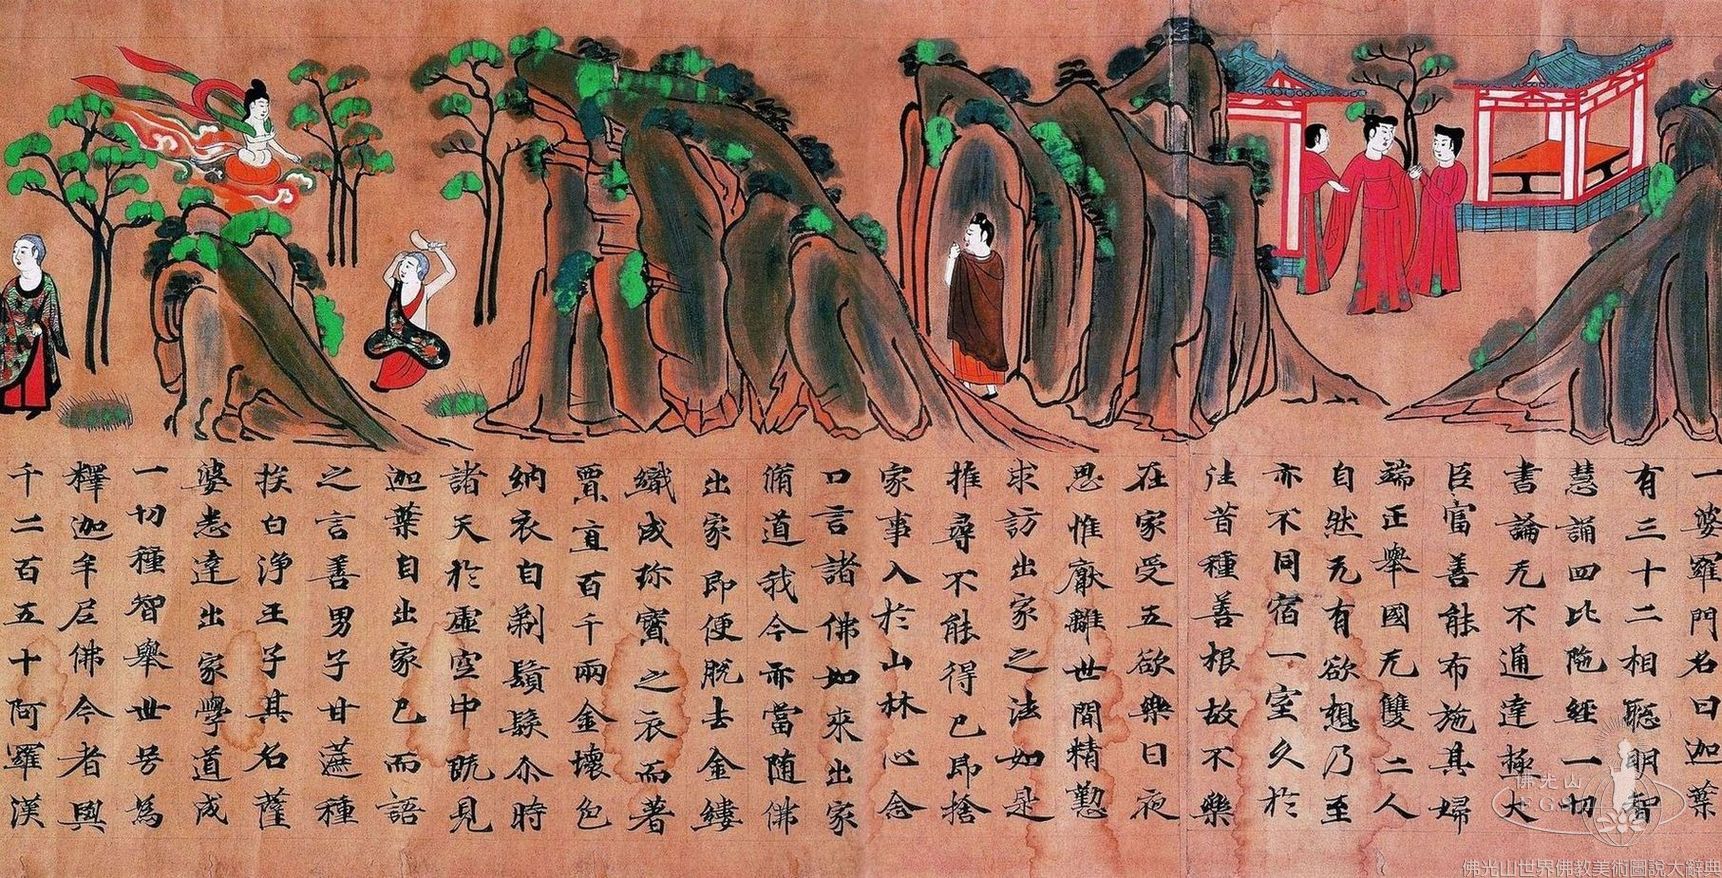 一婆羅門名曰迦葉
有三十二相聡明智
慧誦四比陁經一切
書論无不通達極大
臣富善能布施其婦
端正舉國无雙二人
自然无有欲想乃至
亦不同宿一室久於
往昔種善根故不樂
在家受五欲樂日夜
思惟厭離世間精懃
求訪出家之法如是
推尋不能得已即捨
家事入於山林心念
口言諸佛如來出家
脩道我今亦當随佛
出家即便脱去金縷
織成珎寶之衣而著
賈直百千兩金壞色
納衣自剃鬚髮尒時
諸天於虛空中既見
迦葉自出家已而語
之言善男子甘蔗種
族白淨王子其名薩
婆悉達出家學道成
一切種智舉世号為
釋迦牟尼佛今者與
千二百五十阿羅漢
佛光山
FGS
佛光山世界佛教美術圖說大辭典